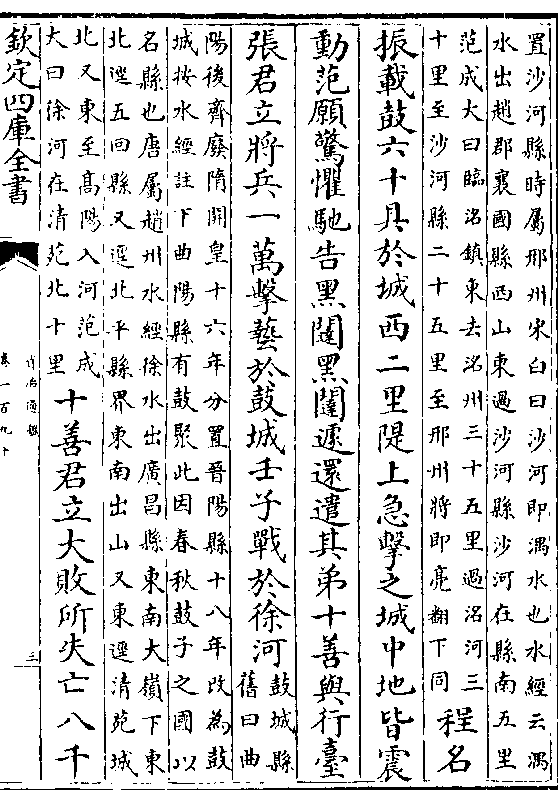 置沙河縣時屬邢州宋白曰沙河即湡水也水經云湡
水出趙郡襄國縣西山東過沙河縣沙河在縣南五里
范成大曰臨洺鎮東去洺州三十五里過洺河三
十里至沙河縣二十五里至邢州將即亮翻下同
程名
振載鼓六十具於城西二里隄上急擊之城中地皆震
動范願驚懼馳告黑闥黑闥遽還遣其弟十善與行臺
張君立將兵一萬擊藝於鼓城壬子戰於徐河
鼓城縣
舊曰曲
陽後齊廢隋開皇十六年分置晉陽縣十八年改為鼓
城按水經註下曲陽縣有鼓聚此因春秋鼓子之國以
名縣也唐屬趙州水經徐水出廣昌縣東南大嶺下東
北逕五回縣又逕北平縣界東南出山又東逕清苑城
北又東至髙陽入河范成
大曰徐河在清苑北十里
十善君立大敗所失亡八千
欽定四庫全書
資治通鑑
卷一百九十
三